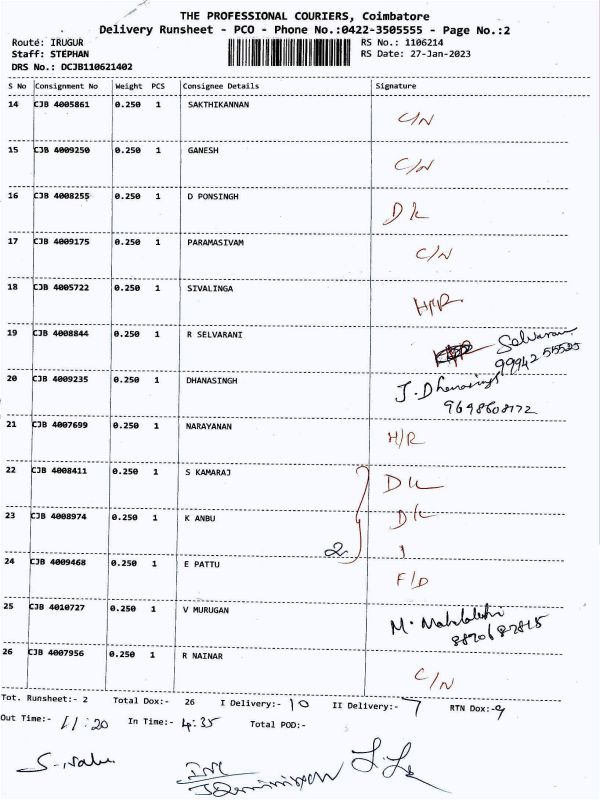 THE PROFESSIONAL COURIERS, Coimbatore
Delivery Runsheet - PCO - Phone No.:0422-3505555 - Page No.:2
Route: IRUGUR
RS No.: 1106214
Staff: STEPHAN
RS Date: 27-Jan-2023
DRS No.: DCJB110621402
S No Consignment No Weight PCS Consignee Details Signature
14 CJB 4005861 0.250 1 SAKTHIKANNAN C/N
15 CJB 4009250 0.250 1 GANESH C/N
16 CJB 4008255 0.250 1 D PONSINGH D/L
17 CJB 4009175 0.250 1 PARAMASIVAM C/N
18 CJB 4005722 0.250 1 SIVALINGA H/R
19 CJB 4008844 0.250 1 R SELVARANI Selvarani
20 CJB 4009235 0.250 1 DHANASINGH J. Dhanasingh
9698608172
21 CJB 4007699 0.250 1 NARAYANAN H/R
22 CJB 4008411 0.250 1 S KAMARAJ D/L
23 CJB 4008974 0.250 1 K ANBU D/L
2
24 CJB 4009468 0.250 1 E PATTU F/D
25 CJB 4010727 0.250 1 V MURUGAN M.
26 CJB 4007956 0.250 1 R NAINAR C/N
Tot. Runsheet:- 2 Total Dox:- 26 I Delivery:- 10 II Delivery:- 7 RTN Dox:- 9
Out Time:- 11:20 In Time:- 4:35 Total POD:-